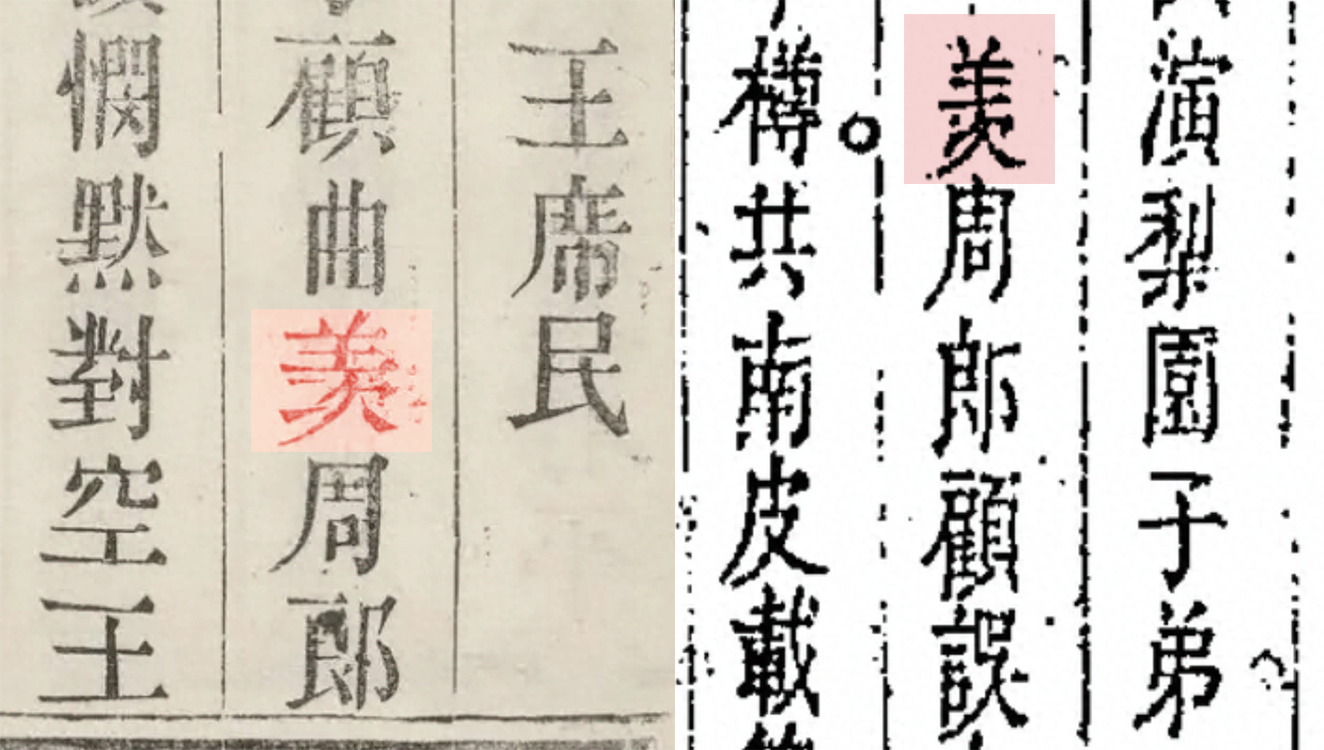 王席民
顧曲羡周郎
憫默對空王
演梨園子弟
羡周郎顧誤
樽共南皮載